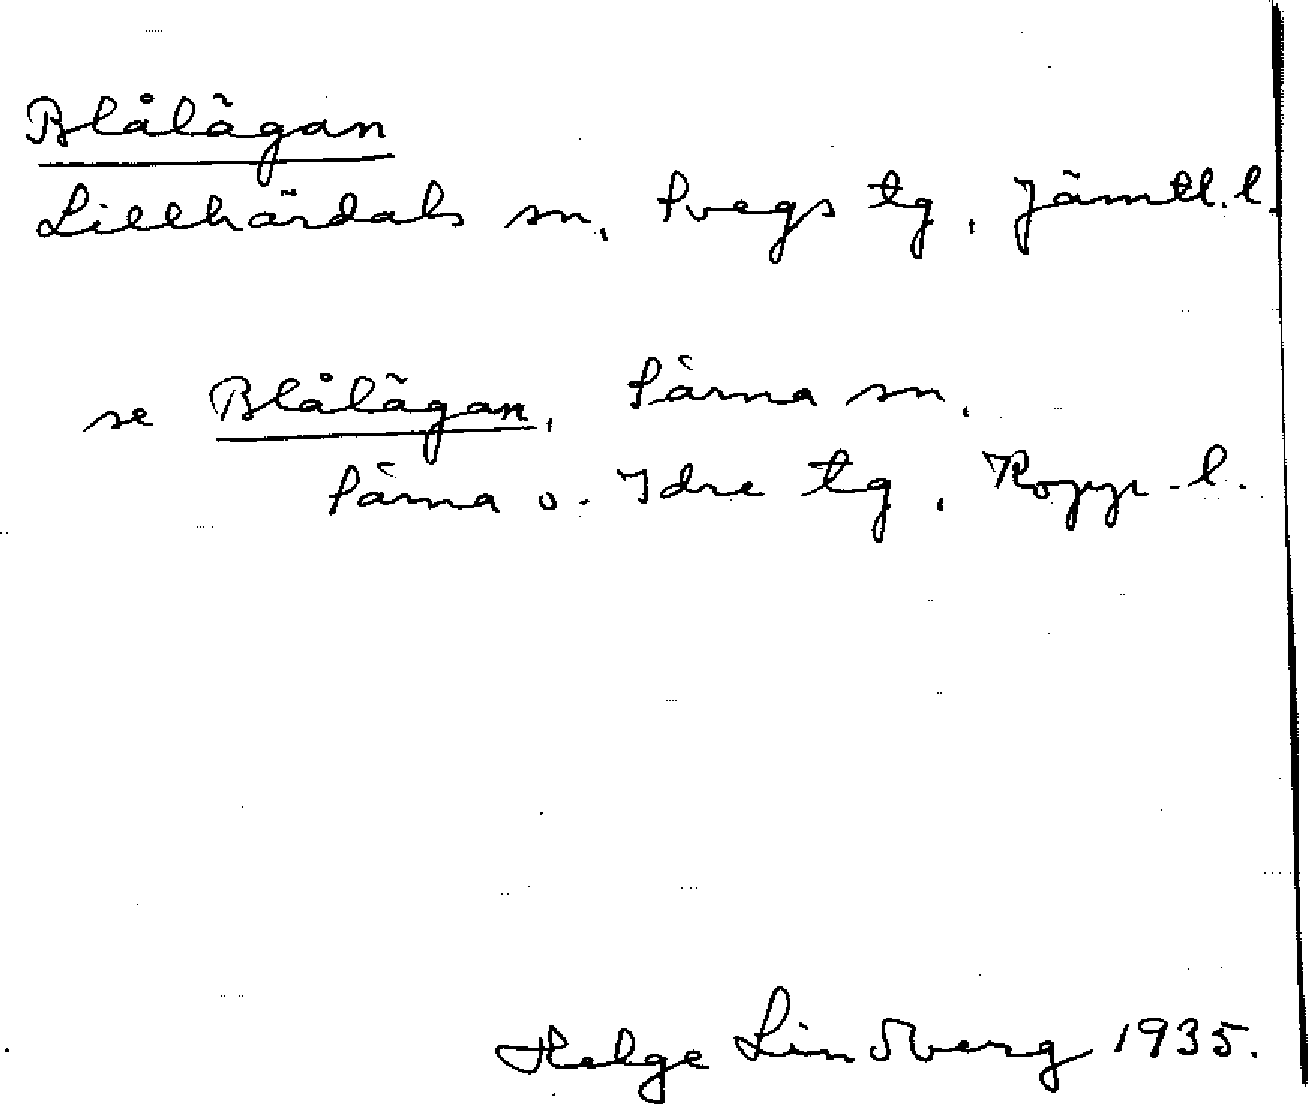 Blålägan
Lillhärdals sn, Svegs tg, Jämtl. l.
se Blålägan, Särna sn,
Särna o. Idre tg, Kopp. l.
Helge Lindberg 1935.